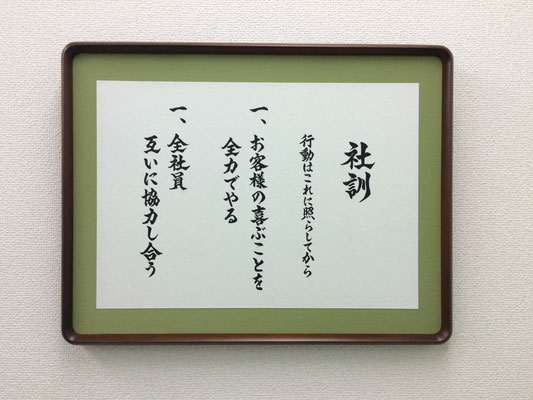 社訓
行動はこれに照らしてから
一、お客様の喜ぶことを
全力でやる
一、全社員
互いに協力し合う